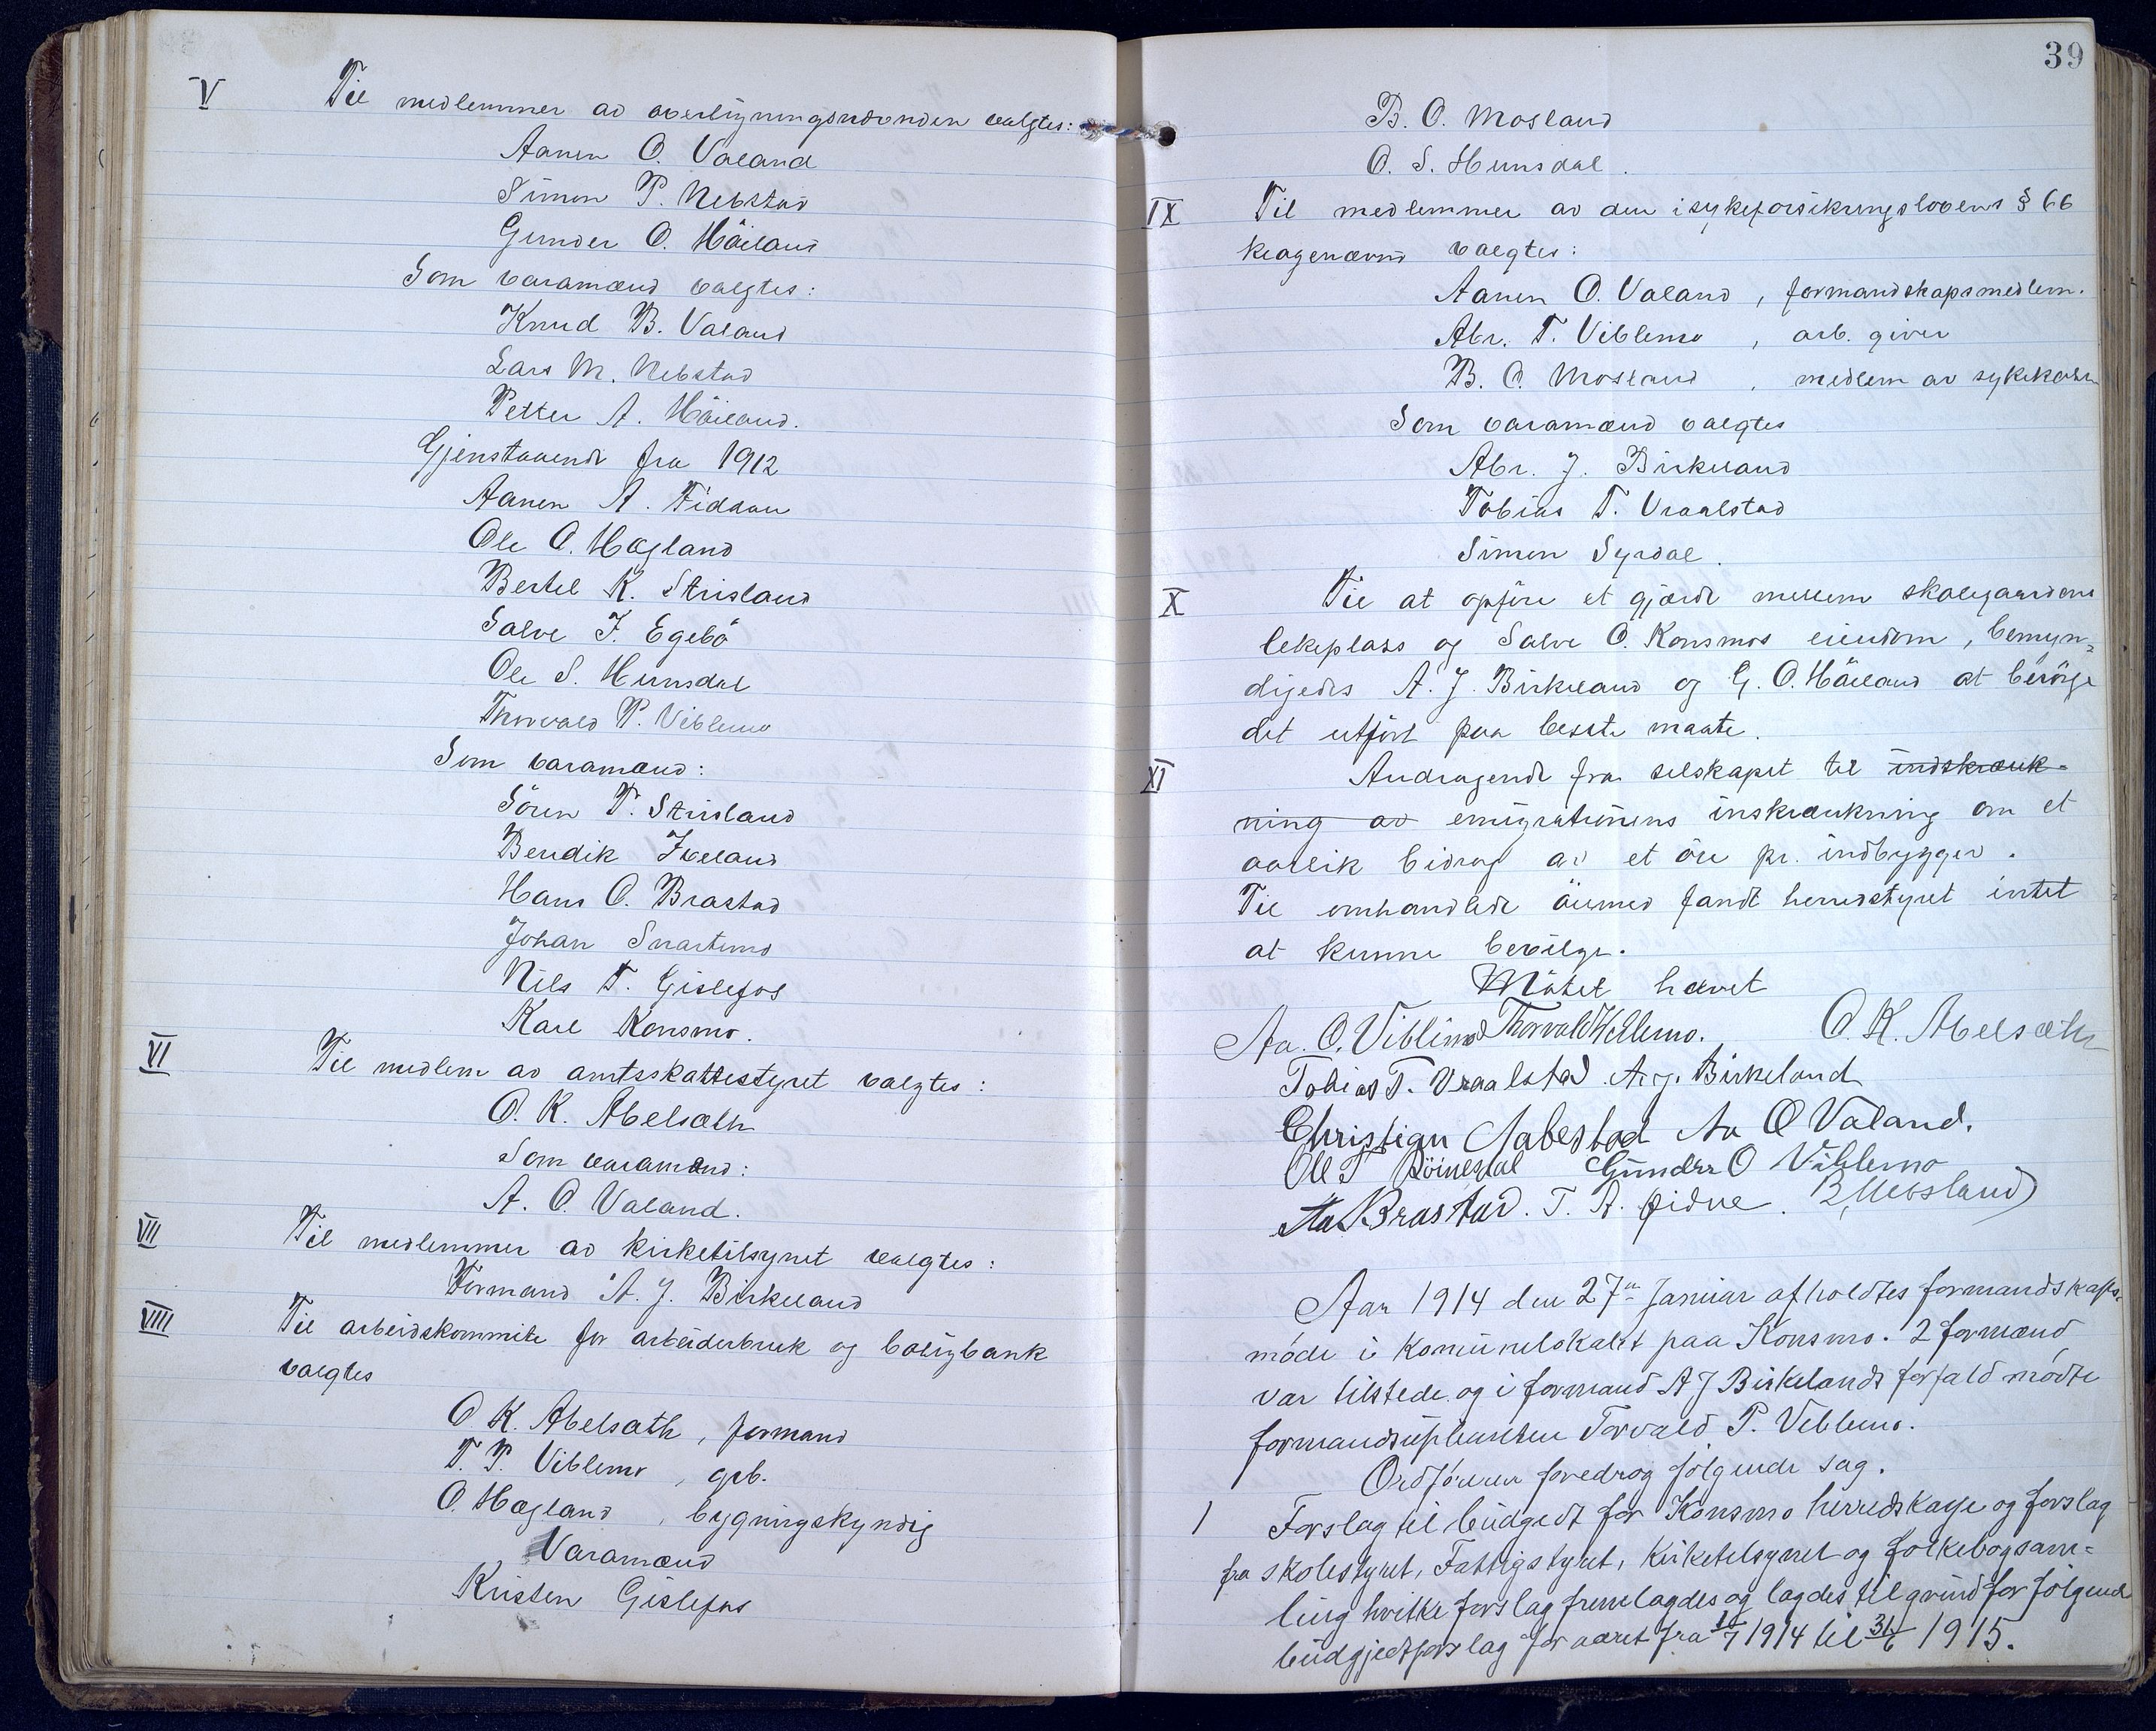 V Til medlemmer av overligningsnævnden valgtes:
Aanen O. Valand
Simon P. Nebstad
Gunder O. Häiland
Som varamænd valgtes:
Knud B. Valand
Lars M. Nebstad
Petter A. Häiland.
Gjenstaaende fra 1912
Aanen A. Fidaan
Ole O. Hægland
Bertel K. Strisland
Salve J. Egebö
Ole S. Hunsdal
Thorvald P. Viblemo
Som varamænd:
Sören P. Strisland
Bendik Iveland
Hans O. Brastad
Johan Snartemo
Nils T. Gislefos
Karl Konsmo.
VI Til medlem av amtsskattestyret valgtes:
O. K. Abelsæth
Som varamand:
A. O. Valand.
VII Til medlemmer av kirketilsynet valgtes:
Formand A. J. Birkeland
VIII Til arbeidskommite for arbeiderbruk og boligbank
valgtes
O. K. Abelsæth, formand
T. P. Viblemo, grb.
O. Hægland, bygningskyndig
Varamænd
Kristen Gislefos
39
B. O. Mosland
O. S. Hunsdal.
IX Til medlemmer av den i sykeforsikringslovens § 66
klagenævnd valgtes:
Aanen O. Valand, formandskapsmedlem.
Abr. T. Viblemo, arb. giver
B. O. Mosland, medlem av sykekassen
Som varamænd valgtes
Abr. J. Birkeland
Tobias T. Vraalstad
Simon Syrdal.
X Til at opføre et gjærde mellem skolegaardens
lekeplass og Salve O. Konsmos eiendom, bemyn=
digedes A. J. Birkeland og G. O. Häiland at besörge
det utført paa beste maate.
XI Andragende fra selskapet til indskrænk-
ning av emigrationens inskrænkning om et
aarlik bidrag av et öre pr. indbygger.
Til omhandlede öiemed fandt herredstyret intet
at kunne bevilge.
Mötet hævet
Aa. O. Viblemo Thorvald Viblemo. O. K. Abelsæth
Tobias T. Vraalstad A. J. Birkeland
Christian Aabestad Aa O Valand.
Ole T Gunder O Viblemo
Aa. Brastad. T. A. B. Mosland
Aar 1914 den 27de Januar afholdtes formandskaps-
møde i Komunelokalet paa Konsmo. 2 formænd
var tilstede og i formand A J Birkelands forfald mødte
formandsuplanten Torvald P. Viblemo.
Ordføreren foredrog følgende sag.
1 Forslag til budgedt for Konsmo herredskasse og forslag
fra skolestyret, Fattigstyret, Kirketilsynet og folkebogsam=
ling hvilke forslag fremlagdes og lagdes til grund for følgende
budgjedtforslag for aaret fra 1/7 1914 til 31/6 1915.